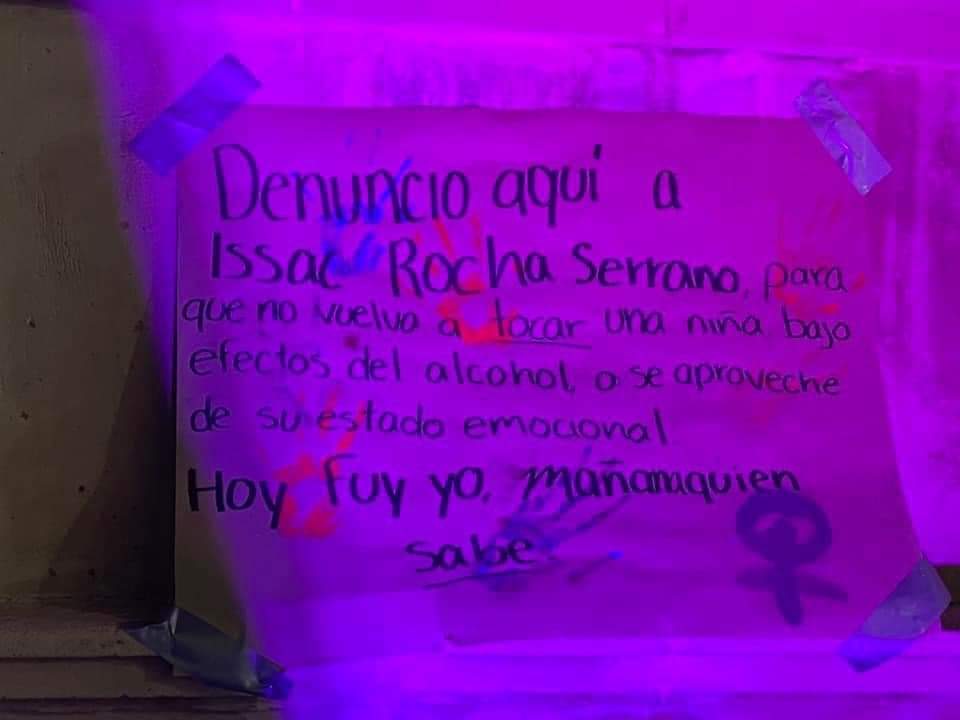 Denuncio aquí a
Issac Rocha Serrano, para
que no vuelva a tocar una niña bajo
efectos del alcohol, o se aproveche
de su estado emocional
Hoy Fuy yo, mañana quien
sabe